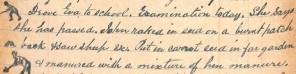 Drove Eva to school. Examination today. She says
she has passed. John raked in seed on a burnt patch
on back & saw sheep etc. Put in carrot seed in far garden
& manured with a mixture of hen manure.